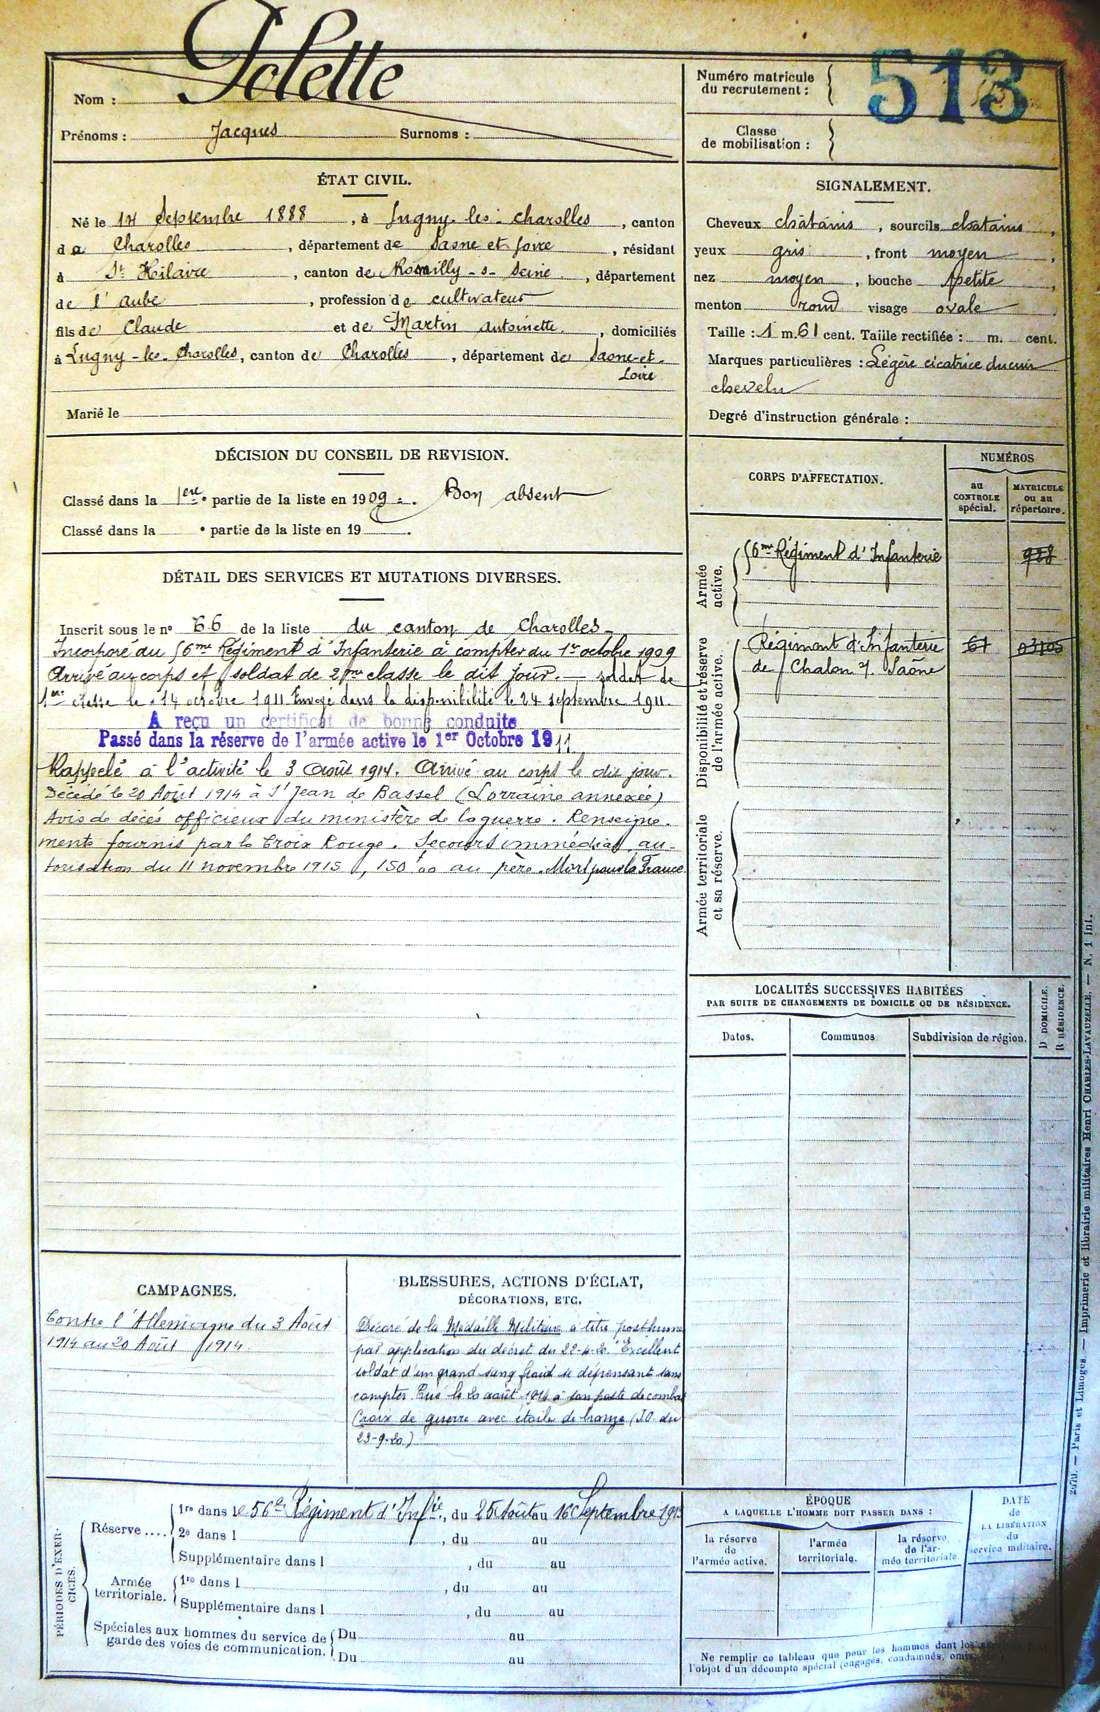 Nom : Polette
Prénoms : Jacques Surnoms :
Numéro matricule
du recrutement :
513
Classe
de mobilisation :
ÉTAT CIVIL.
Né le 14 Septembre 1888, à Lugny-les-Charolles, canton
de Charolles, département de Saône et Loire, résidant
à St Hilaire, canton de Romilly-s-Seine, département
de l'Aube, profession de cultivateur
fils de Claude et de Martin Antoinette, domiciliés
à Lugny-les-Charolles, canton de Charolles, département de Saône-et-
Loire
Marié le
SIGNALEMENT.
Cheveux châtains, sourcils châtains,
yeux gris, front moyen,
nez moyen, bouche petite,
menton rond visage ovale
Taille : 1 m. 61 cent. Taille rectifiée : m. cent.
Marques particulières : Légère cicatrice du cuir
chevelu
Degré d'instruction générale :
DÉCISION DU CONSEIL DE REVISION.
Classé dans la 1ere partie de la liste en 1909. Bon absent
Classé dans la • partie de la liste en 19 .
DÉTAIL DES SERVICES ET MUTATIONS DIVERSES.
Inscrit sous le n° 66 de la liste du canton de Charolles
Incorporé au 56me Régiment d'Infanterie à compter du 1er octobre 1909
Arrivé au corps et soldat de 2me classe le dit jour. — soldat de
1ere classe le 14 octobre 1911. Envoyé dans la disponibilité le 24 septembre 1911.
A reçu un certificat de bonne conduite
Passé dans la réserve de l'armée active le 1er Octobre 1911
Rappelé à l'activité le 3 Août 1914. Arrivé au corps le dit jour.
Décédé le 20 Août 1914 à St Jean de Bassel (Lorraine annexée)
Avis de décès officieux du ministère de la guerre. Renseigne-
ments fournis par la Croix Rouge. Secours immédiat, au-
torisation du 11 novembre 1915, 150f00 au père. Mort pour la France
CORPS D'AFFECTATION.
NUMÉROS
au
CONTROLE
spécial.
MATRICULE
ou au
répertoire.
Armée
active.
56me Régiment d'Infanterie
Disponibilité et réserve
de l'armée active.
Régiment d'Infanterie 61
de Chalon s/ Saône
Armée territoriale
et sa réserve.
LOCALITÉS SUCCESSIVES HABITÉES
PAR SUITE DE CHANGEMENTS DE DOMICILE OU DE RÉSIDENCE.
Dates. Communes Subdivision de région.
D DOMICILE.
R RÉSIDENCE.
CAMPAGNES.
Contre l'Allemagne du 3 Août
1914 au 20 Août 1914
BLESSURES, ACTIONS D'ÉCLAT,
DÉCORATIONS, ETC.
Décoré de la Médaille Militaire à titre posthume
par application du décret du 22-4-20. "Excellent
soldat d'un grand sang froid se dépensant sans
compter. Tué le 20 août 1914 à son poste de combat
Croix de guerre avec étoile de bronze (J.O. du
23-9-20)
PÉRIODES D'EXER-
CICES.
Réserve ....
1re dans le 56e Régiment d'Infie, du 25 Août au 16 Septembre 1913
2e dans l , du au
Supplémentaire dans l , du au
Armée
territoriale.
1re dans l , du au
Supplémentaire dans l , du au
Spéciales aux hommes du service de
garde des voies de communication.
Du au
Du au
ÉPOQUE
A LAQUELLE L'HOMME DOIT PASSER DANS :
la réserve
de
l'armée active.
l'armée
territoriale.
la réserve
de l'ar-
mée territoriale
DATE
de
LA LIBÉRATION
du
service militaire.
Ne remplir ce tableau que pour les hommes dont les
l'objet d'un décompte spécial (engagés, condamnés, omis,
2070. — Paris et Limoges. — Imprimerie et librairie militaires Henri CHARLES-LAVAUZELLE. — N. 1 int.